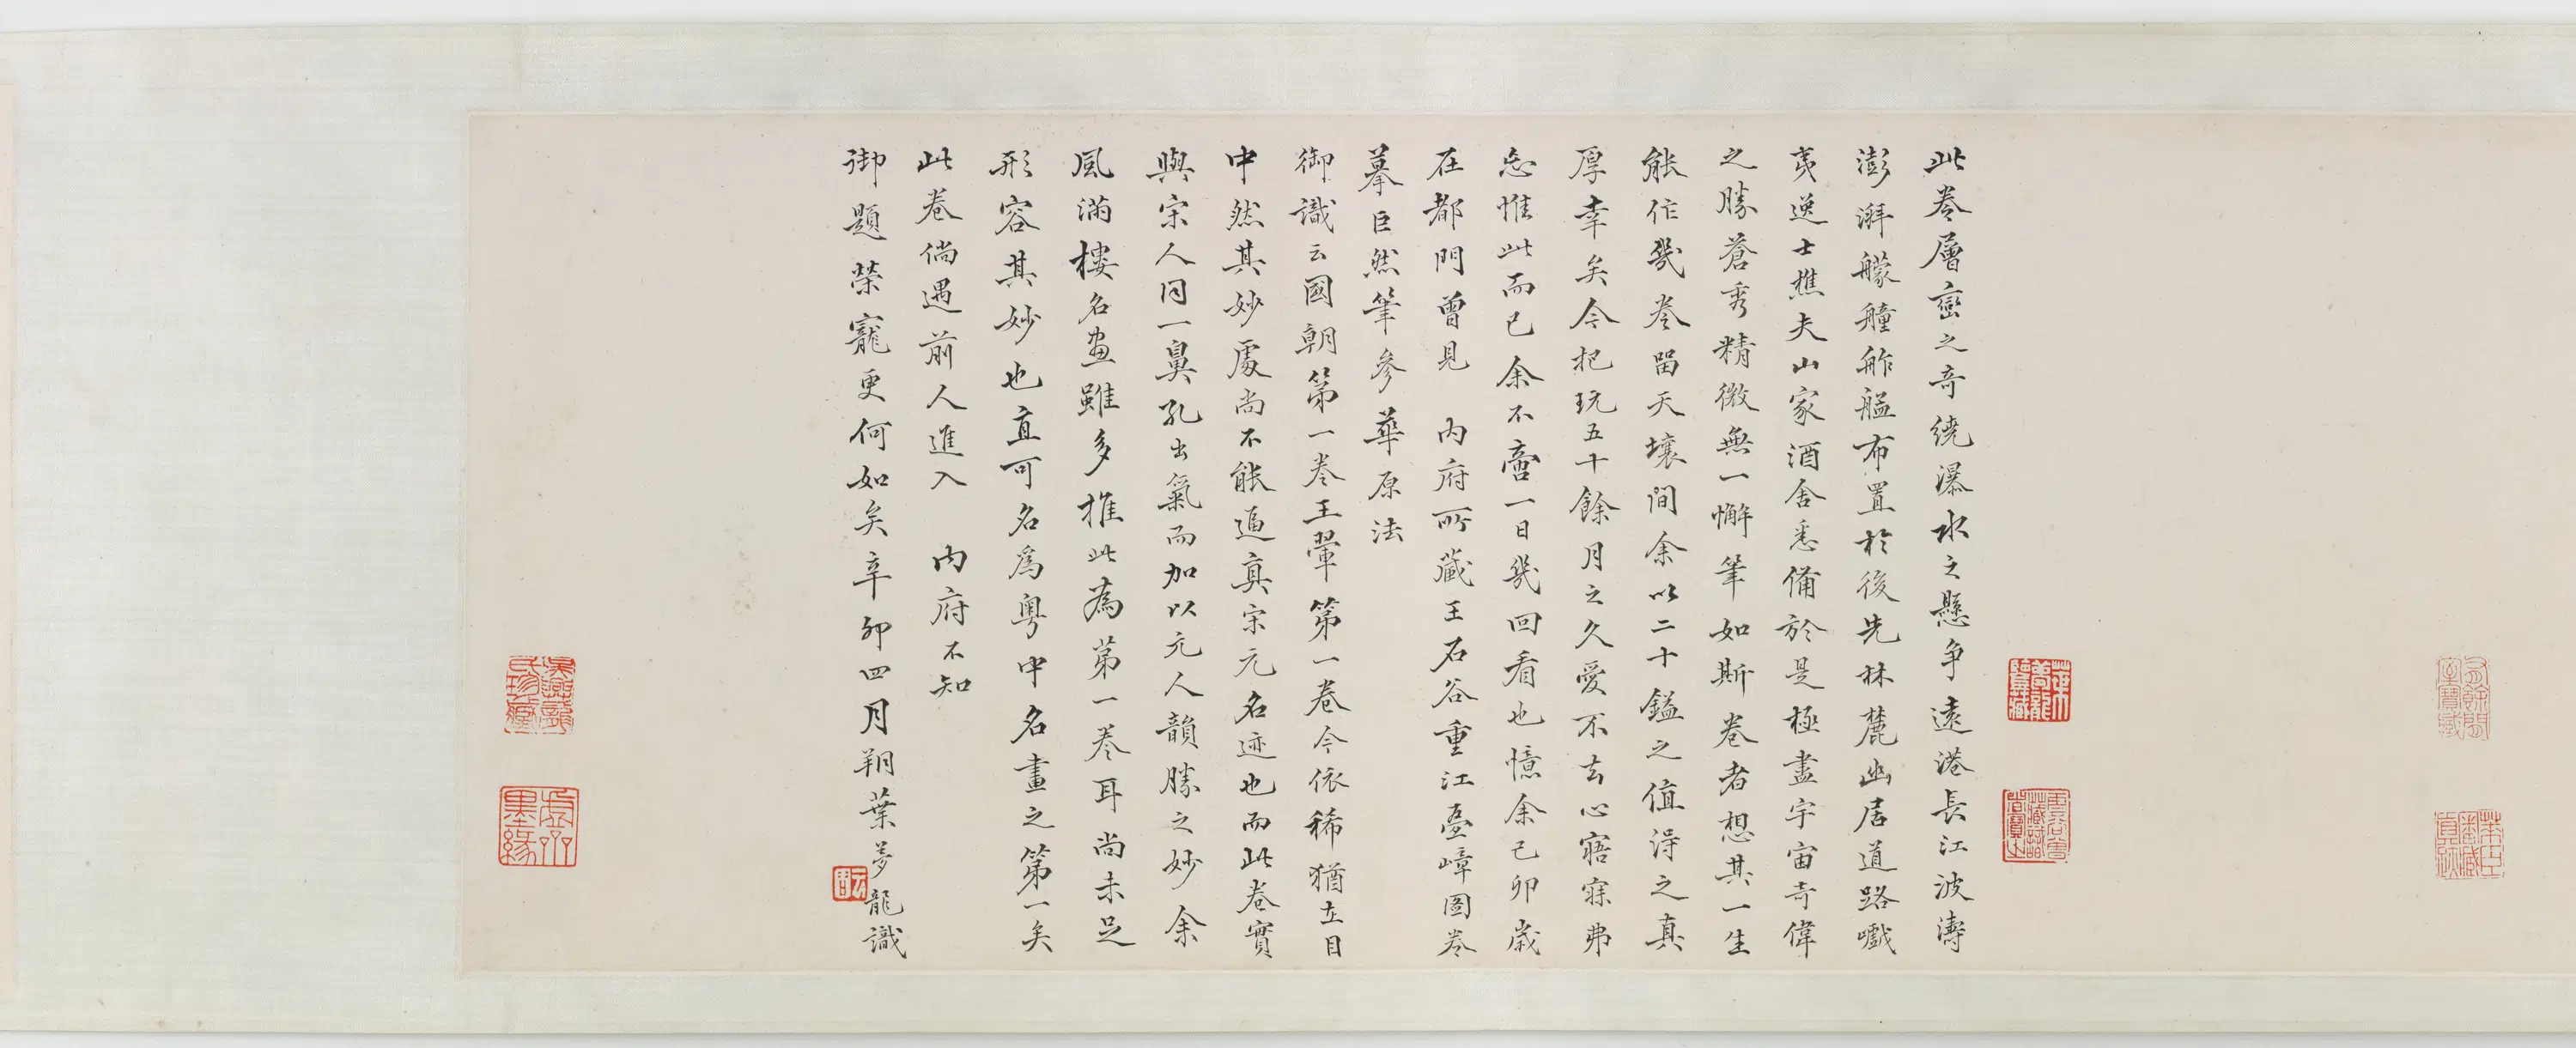 此卷層巒之奇繞瀑水之懸争遠港長江波濤
澎湃艨艟舴艋布置於後先林麓幽居道路巇
夷逸士樵夫山家酒舍悉備於是極盡宇宙奇偉
之勝蒼秀精微無一懈筆如斯卷者想其一生
能作幾卷留天壤間余以二十鎰之值得之真
厚幸矣今把玩五十餘月之久愛不去心寤寐弗
忘惟此而已余不啻一日幾回看也憶余己卯歲
在都門曾見 內府所藏王石谷重江疊嶂圖卷
摹巨然筆參華原法
御識云國朝第一卷王翬第一卷今依稀猶在目
中然其妙處尚不能逼真宋元名迹也而此卷實
與宋人同一鼻孔出氣而加以元人韻勝之妙余
風滿樓名畫雖多推此為第一卷耳尚未足
形容其妙也直可名爲粵中名畫之第一矣
此卷倘遇前人進入 內府不知
御題榮寵更何如矣辛卯四月朔葉夢龍識
虛齋墨緣